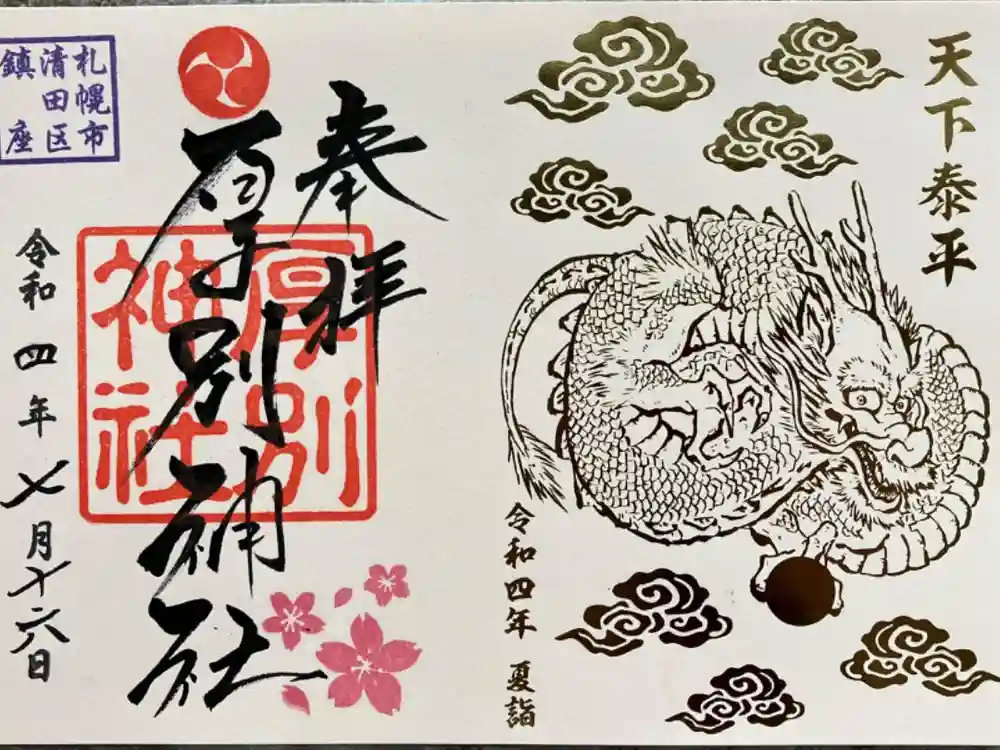 天下泰平
令和四年 夏詣
奉拝
厚別神社
厚別
神社
札幌市
清田区
鎮座
令和四年七月十六日